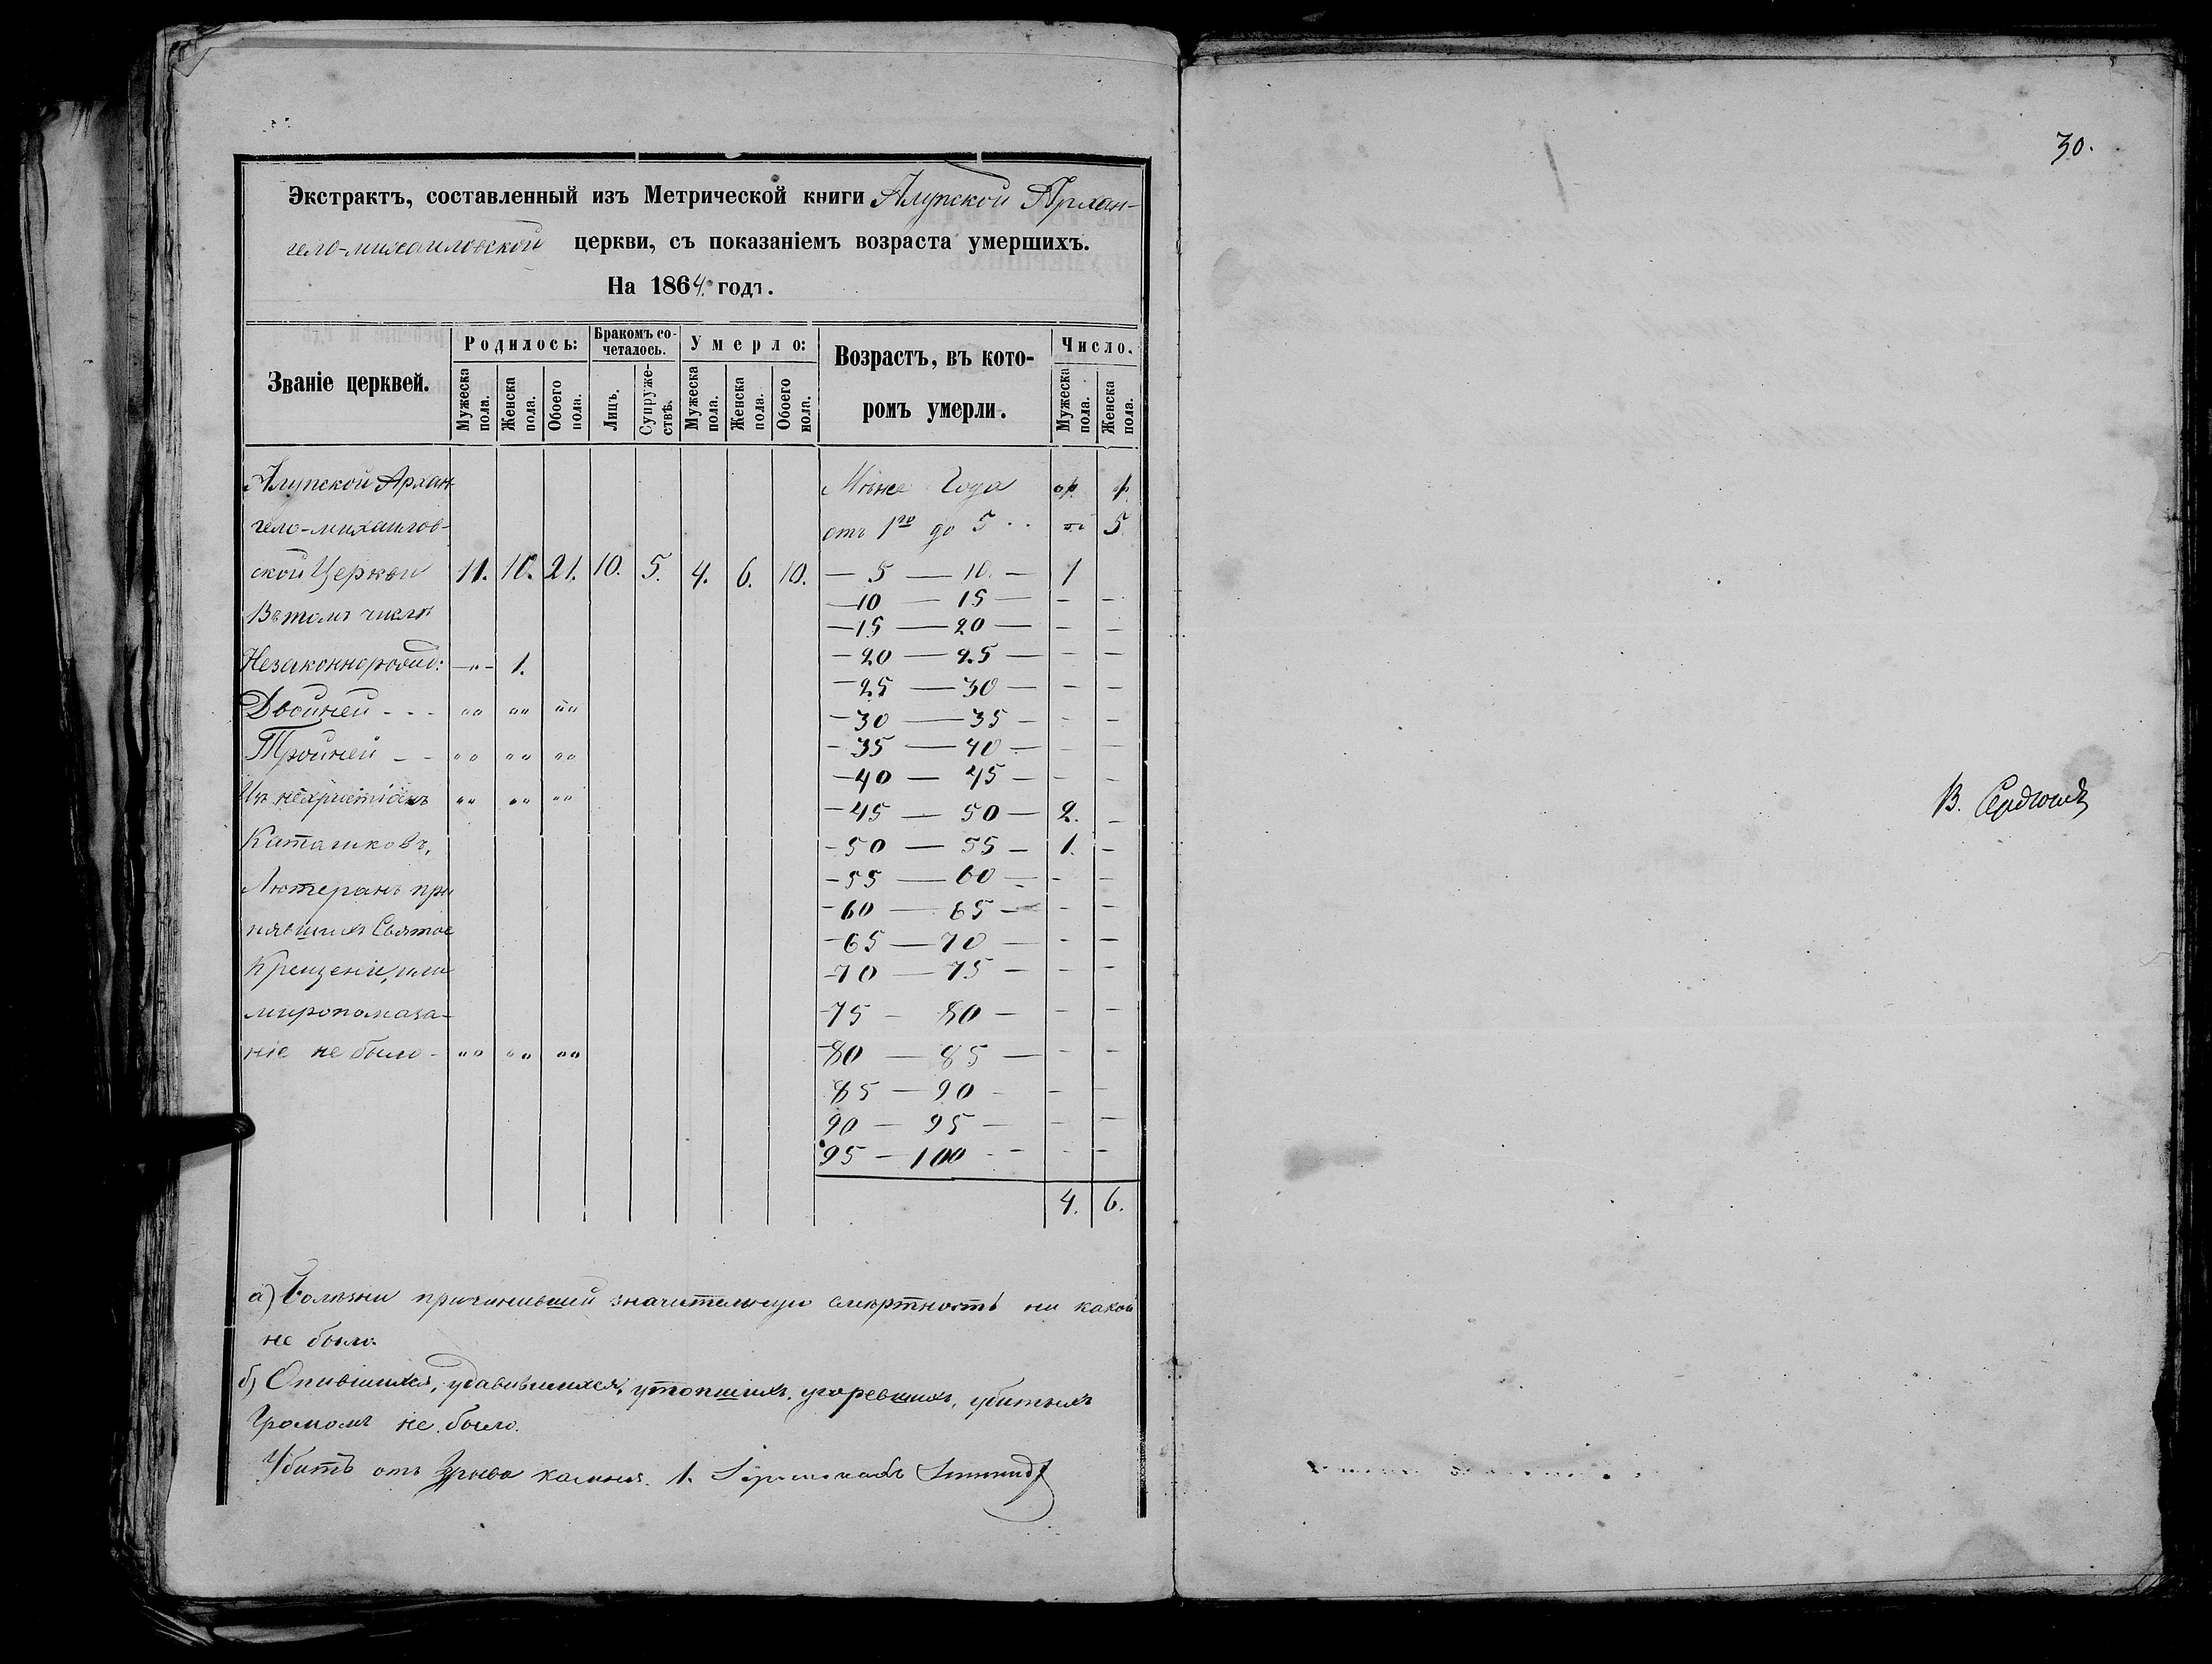 Экстрактъ, составленный изъ Метрической книги Алупской Архан-
гело-михаиловской церкви, съ показаніемъ возраста умершихъ.
На 1864. годъ.
Званіе церквей.
Родилось:
Мужеска пола.
Женска пола.
Обоего пола.
Бракомъ со-
четалось.
Лицъ.
Супруже-
ствъ.
Умерло:
Мужеска пола.
Женска пола.
Обоего пола.
Возрастъ, въ кото-
ромъ умерли.
Число.
Мужеска пола.
Женска пола.
Алупской Архан
гело-михаилов-
ской Церкви 11. 10. 21. 10. 5. 4. 6. 10.
Въ томъ числѣ
Незаконнорожд: -„- 1.
Двойней - - - „ „ „
Тройней - - „ „ „
Изъ нехристіанъ „ „ „
Католиковъ,
Лютеранъ при
нявшихъ Святое
Крещеніе, или
миропомаза-
ніе не было - „ „ „
Менѣе Года
отъ 1го до 5 . . 5
— 5 — 10. — 1
—10 — 15 — – –
—15 — 20 — – –
—20 — 25 — – –
—25 — 30 — – –
—30 — 35 — – –
—35 — 40 — – –
—40 — 45 — – –
—45 — 50 — 2. –
—50 — 55 — 1. –
—55 — 60 — – –
—60 — 65 — – –
—65 — 70 — – –
—70 — 75 — – –
—75 — 80 — – –
—80 — 85 — – –
85 — 90 – – –
90 — 95 — – –
95 — 100 - - – –
4. 6.
а) Болѣзни причинившей значительную смертность ни какой
не было.
б) Опившихся, удавившихся, утопшихъ, угоревшихъ, убитыхъ
Громомъ не было.
Убитъ отъ камня. 1.
30.
В.